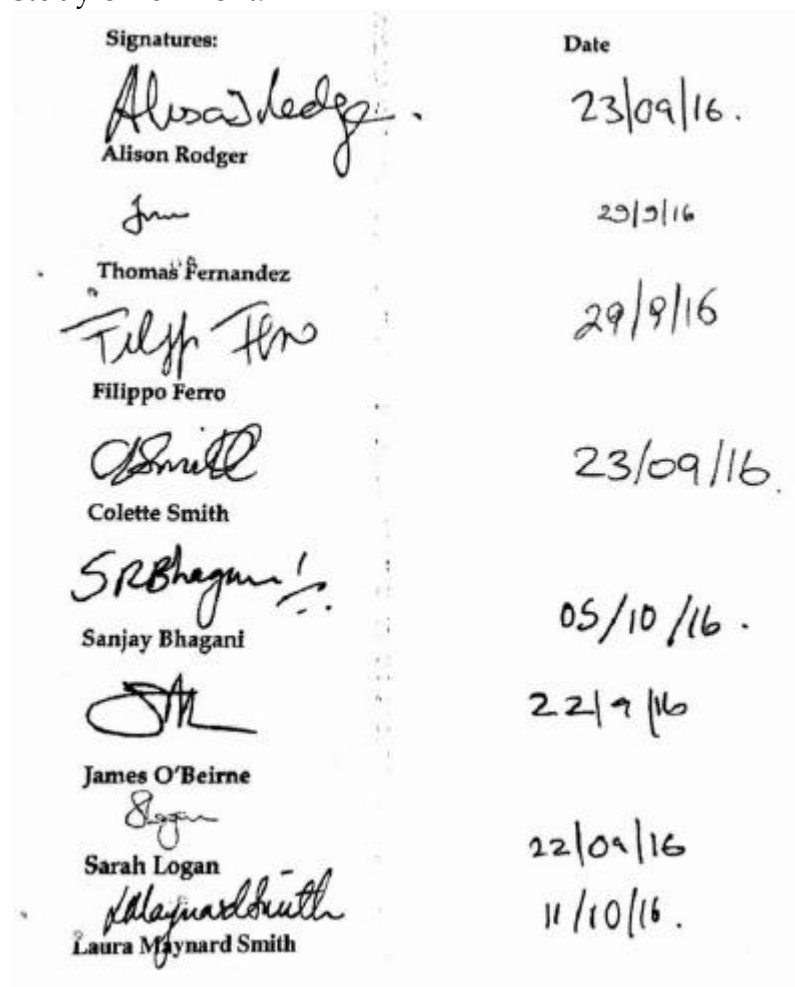 Signatures: Date
23/09/16.
Alison Rodger
29/9/16
Thomas Fernandez
Filippo Ferro 29/9/16
Filippo Ferro
CSmith 23/09/16.
Colette Smith
SRBhagani
05/10/16.
Sanjay Bhagani
22/9/16
James O'Beirne
SLogan
22/09/16
Sarah Logan
LMaynardSmith 11/10/16.
Laura Maynard Smith